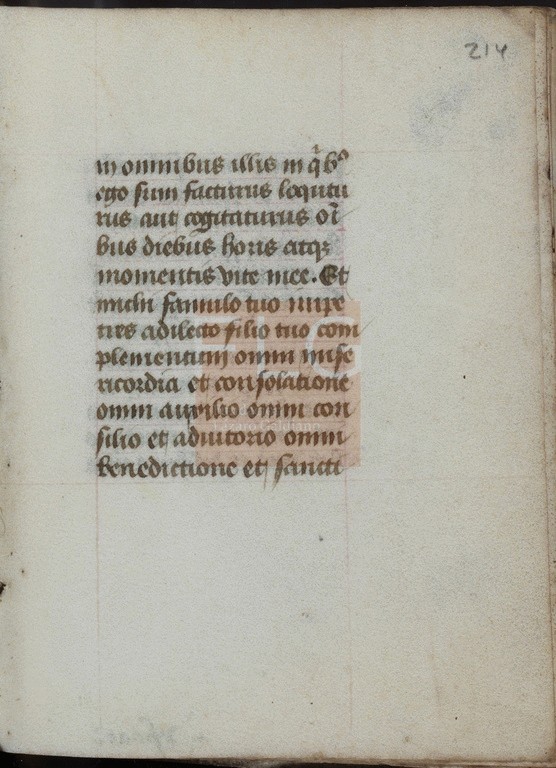 214
in omnibus illis in q̇ib᷒
ego sum facturus loquutu
rus aut cogitaturus oı̄
bus diebus horis atqꝫ
momentis vite mee. Et
michi famulo tuo impe
tres a dilecto filio tuo com
plementum omni mise
ricordia et consolatione
omni auxilio omni con
silio et adiutorio omni
benedictione et sancti
FLG
Lázaro Galdiano